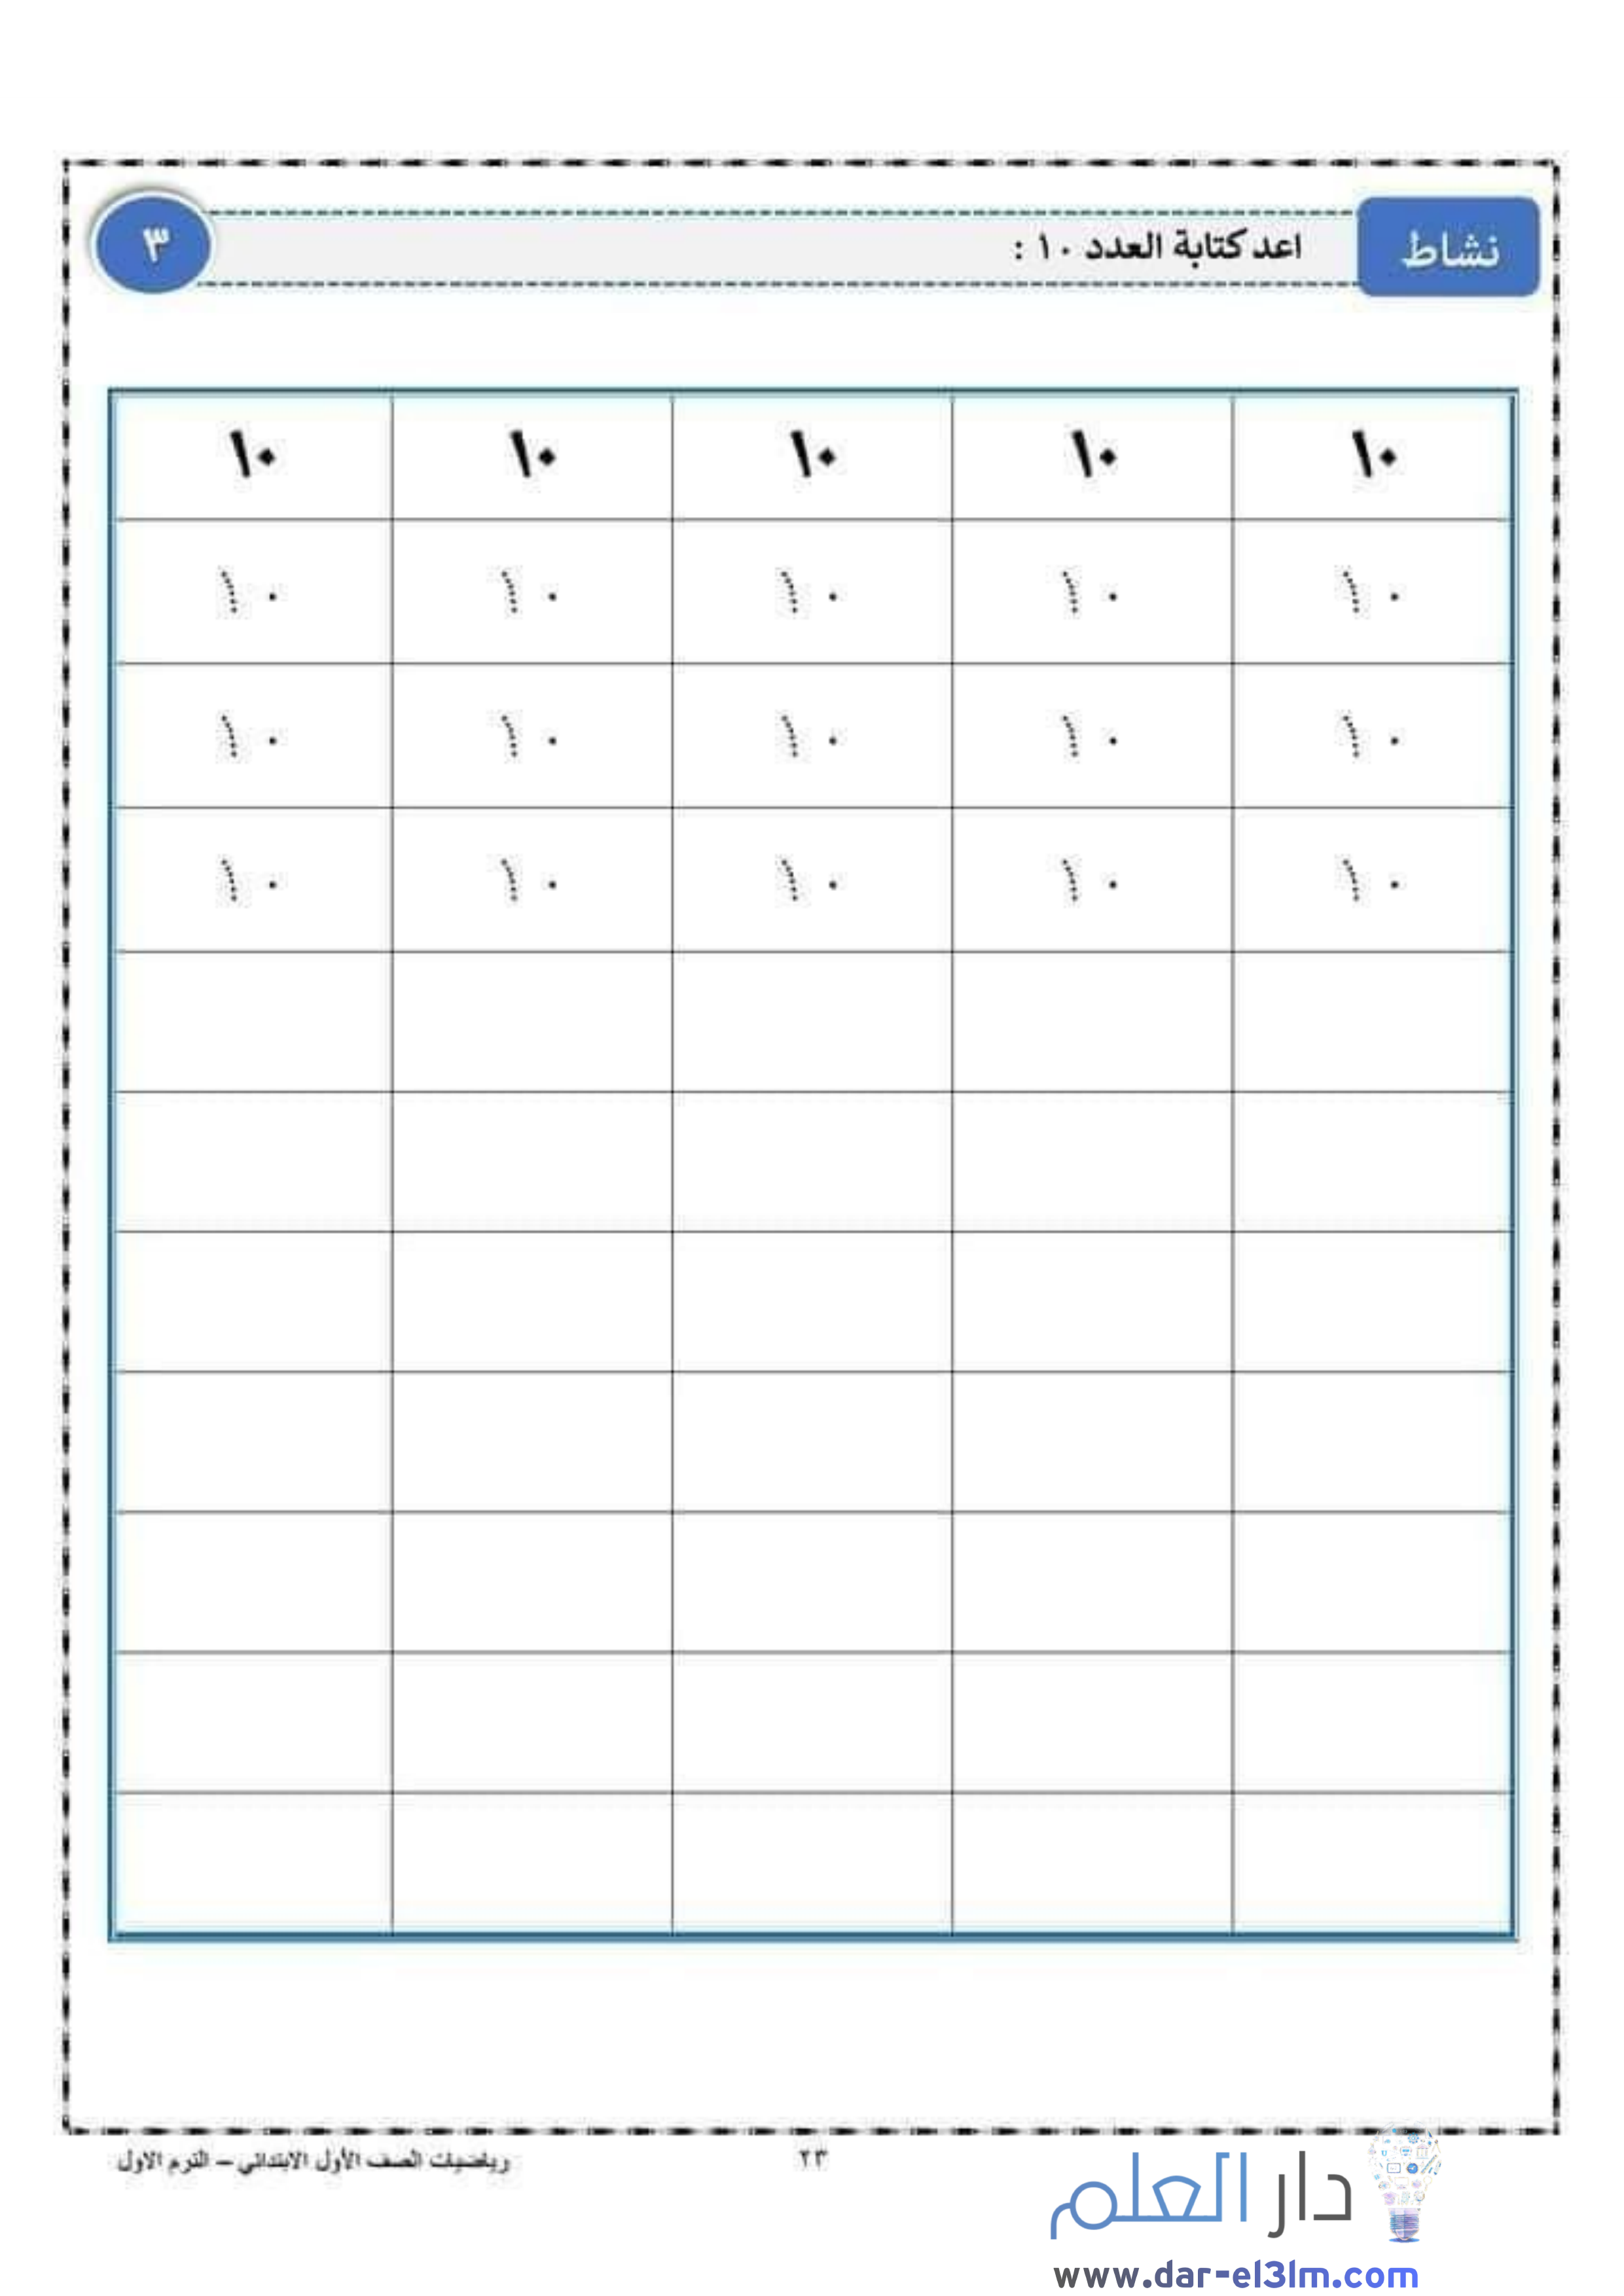 نشاط
اعد كتابة العدد ١٠ :
٣
١٠ ١٠ ١٠ ١٠ ١٠
١٠ ١٠ ١٠ ١٠ ١٠
١٠ ١٠ ١٠ ١٠ ١٠
١٠ ١٠ ١٠ ١٠ ١٠
٢٣
رياضيات الصف الأول الابتدائي – الترم الاول
دار العلم
www.dar-el3lm.com